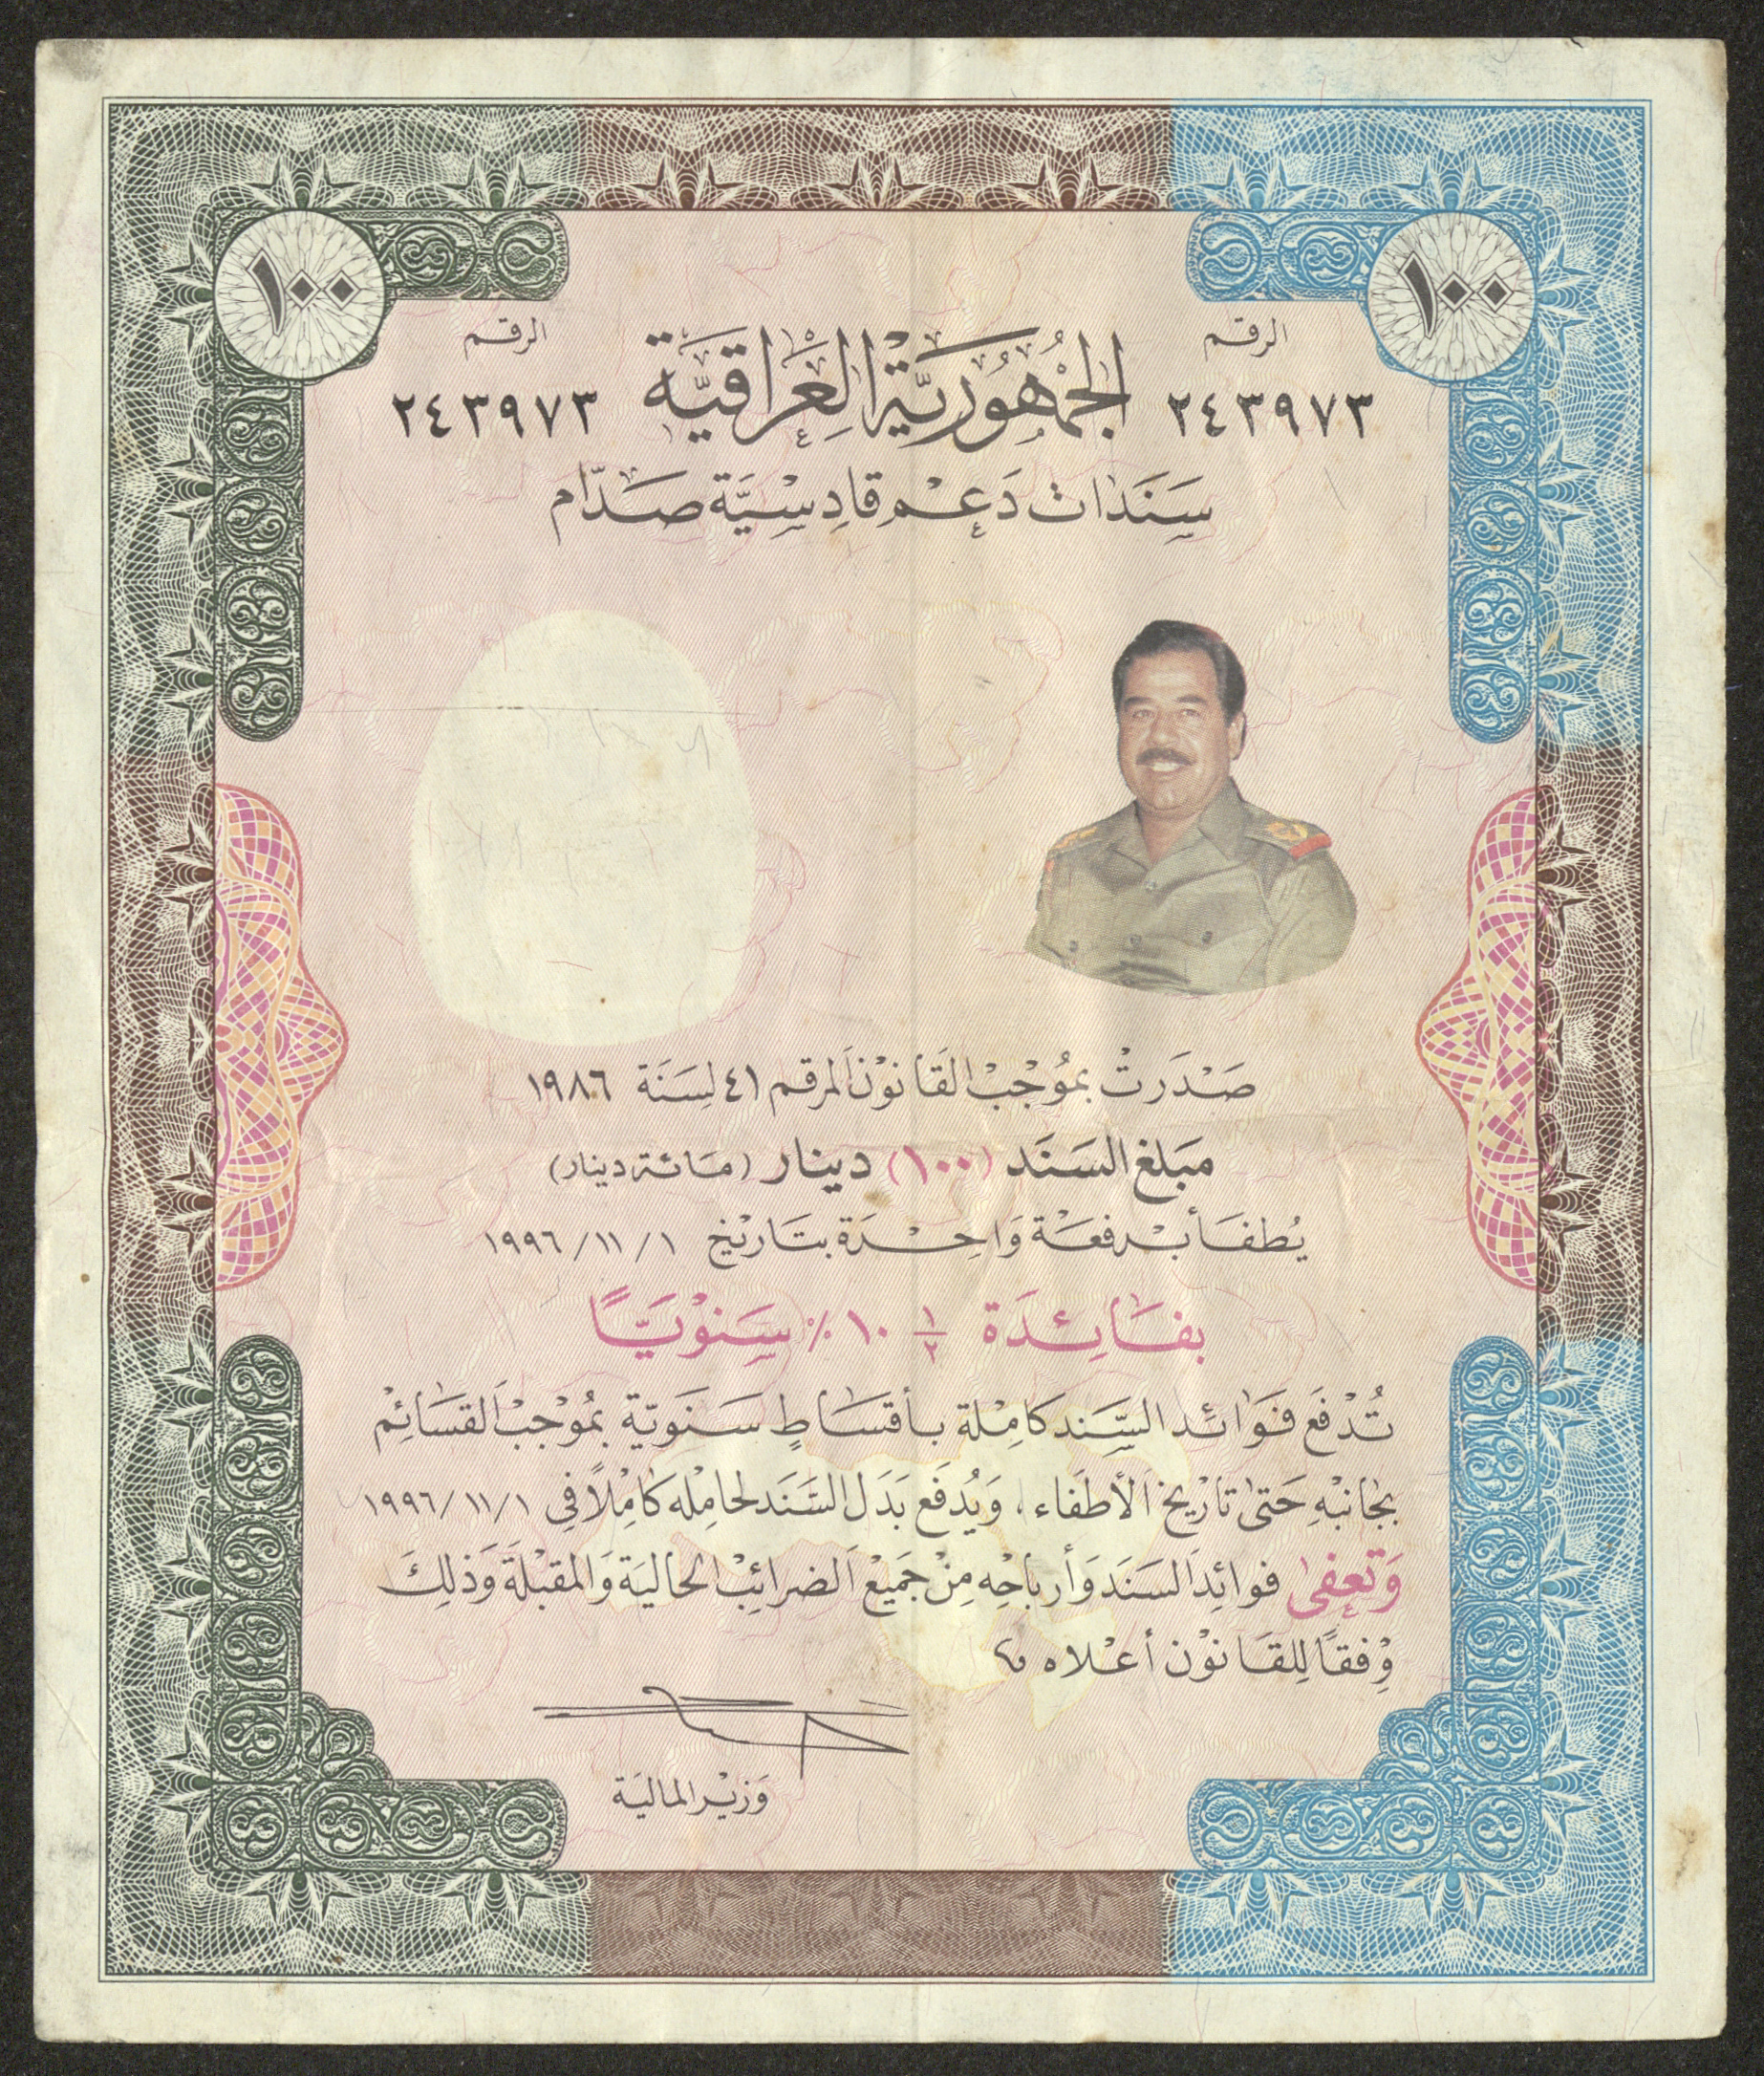 ١٠٠
١٠٠
الرقم
الرقم
٢٤٣٩٧٣
الجُمْهُوريَّة العِرَاقيَّة
٢٤٣٩٧٣
سَنَدات دَعْم قادِسِيَّة صَدّام
صَدَرَتْ بمُوْجبْ القَانوْن المرقم ٤١ لسَنَة ١٩٨٦
مَبلغ السَنَد (١٠٠) دينار (مَائة دينار)
يُطفَأ بدفعَة وَاحِدَة بتَاريْخ ١/١١/١٩٩٦
بفَائِدَة ١/٢ ١٠٪ سَنوْيّاً
تُدْفَع فوَائد السَّنَد كامِلة بأقسَاطٍ سَنَويّة بمُوْجبْ القسَائِمْ
بجَانبْهِ حَتىٰ تاريْخ الأطفَاء، وَيُدفَع بَدَل السَّنَد لحَامِلْه كامْلاً في ١/١١/١٩٩٦
وَتعفىٰ فوائِد السَنَد وَأرباحْهِ مِنْ جَميْع الضرائِبْ الحاليَة وَالمقبْلَة وَذلِكَ
وِفقاً لِلقَانوْن أعْلاه
وَزيْر الماليَة